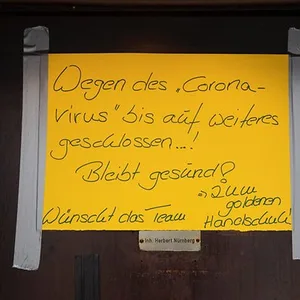 Wegen des „Corona-
virus" bis auf weiteres
geschlossen...!
Bleibt gesund!
Wünscht das Team
"Zum
goldenen
Handschuh!
Inh. Herbert Nürnberg